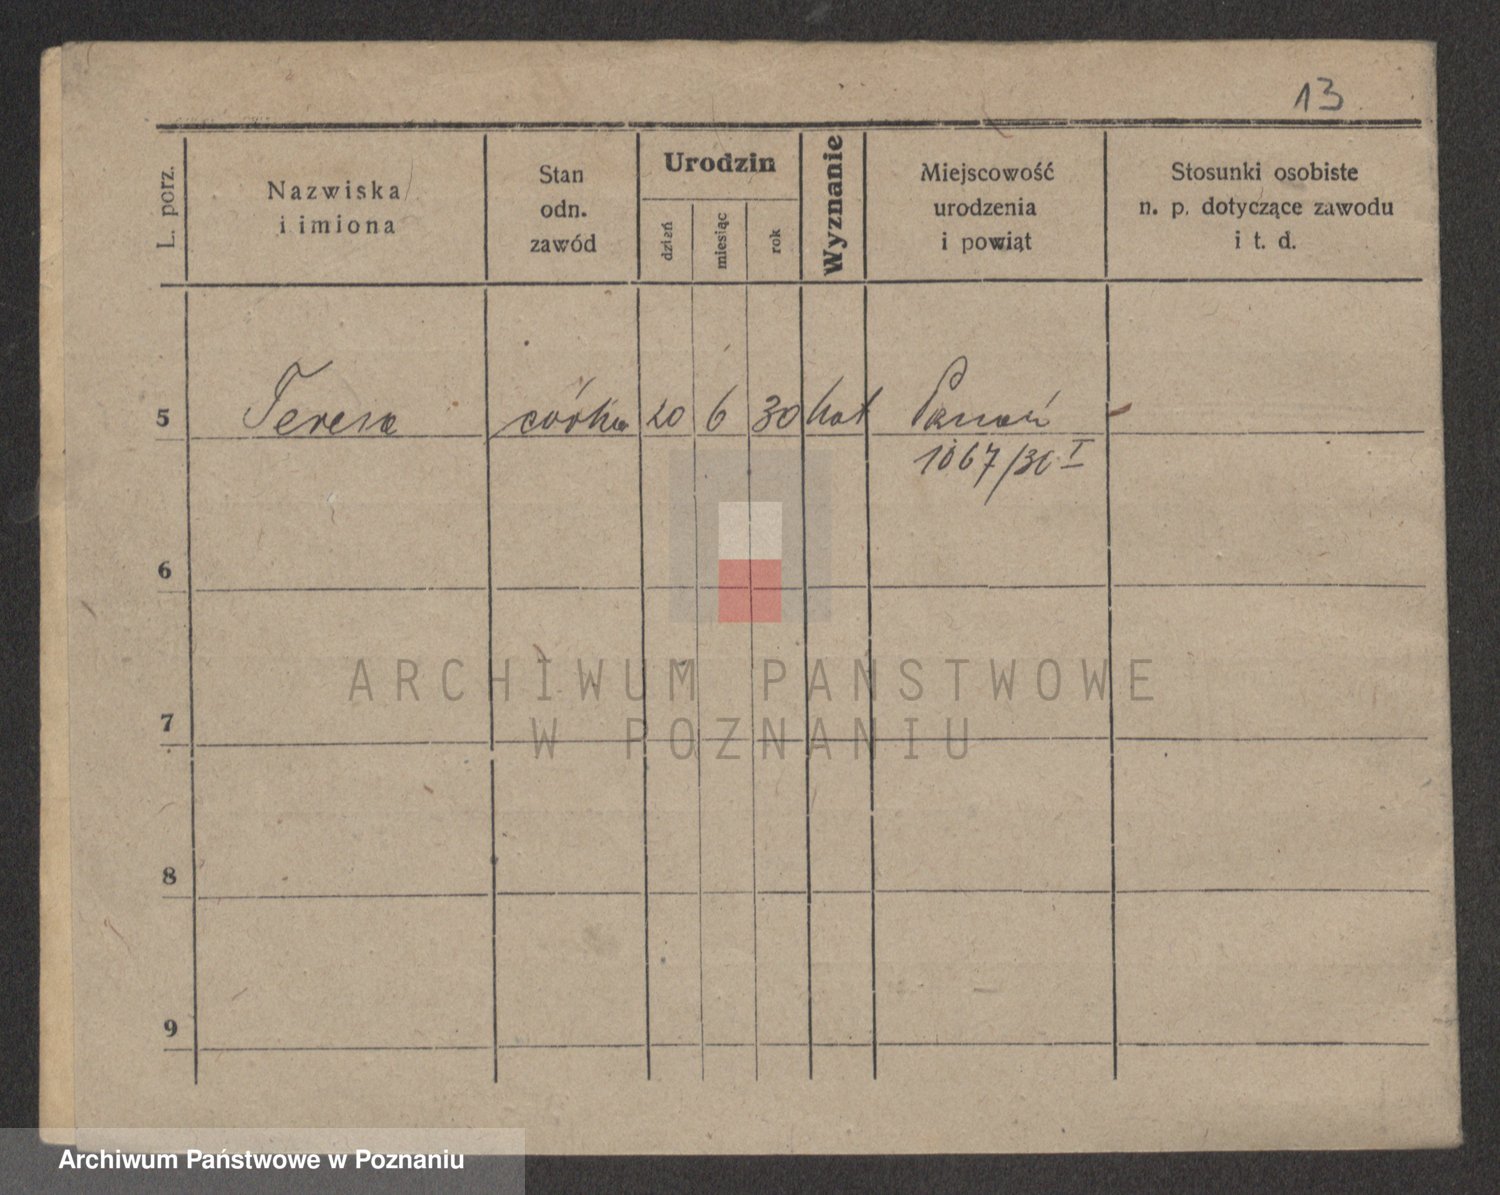 13
L. porz.
Nazwiska
i imiona
Stan
odn.
zawód
Urodzin
dzień
miesiąc
rok
Wyznanie
Miejscowość
urodzenia
i powiąt
Stosunki osobiste
n. p. dotyczące zawodu
i t. d.
5 Teresa córka 20 6 30 kat Poznań
1067/30 I
6
7
8
9
ARCHIWUM PAŃSTWOWE
W POZNANIU
Archiwum Państwowe w Poznaniu